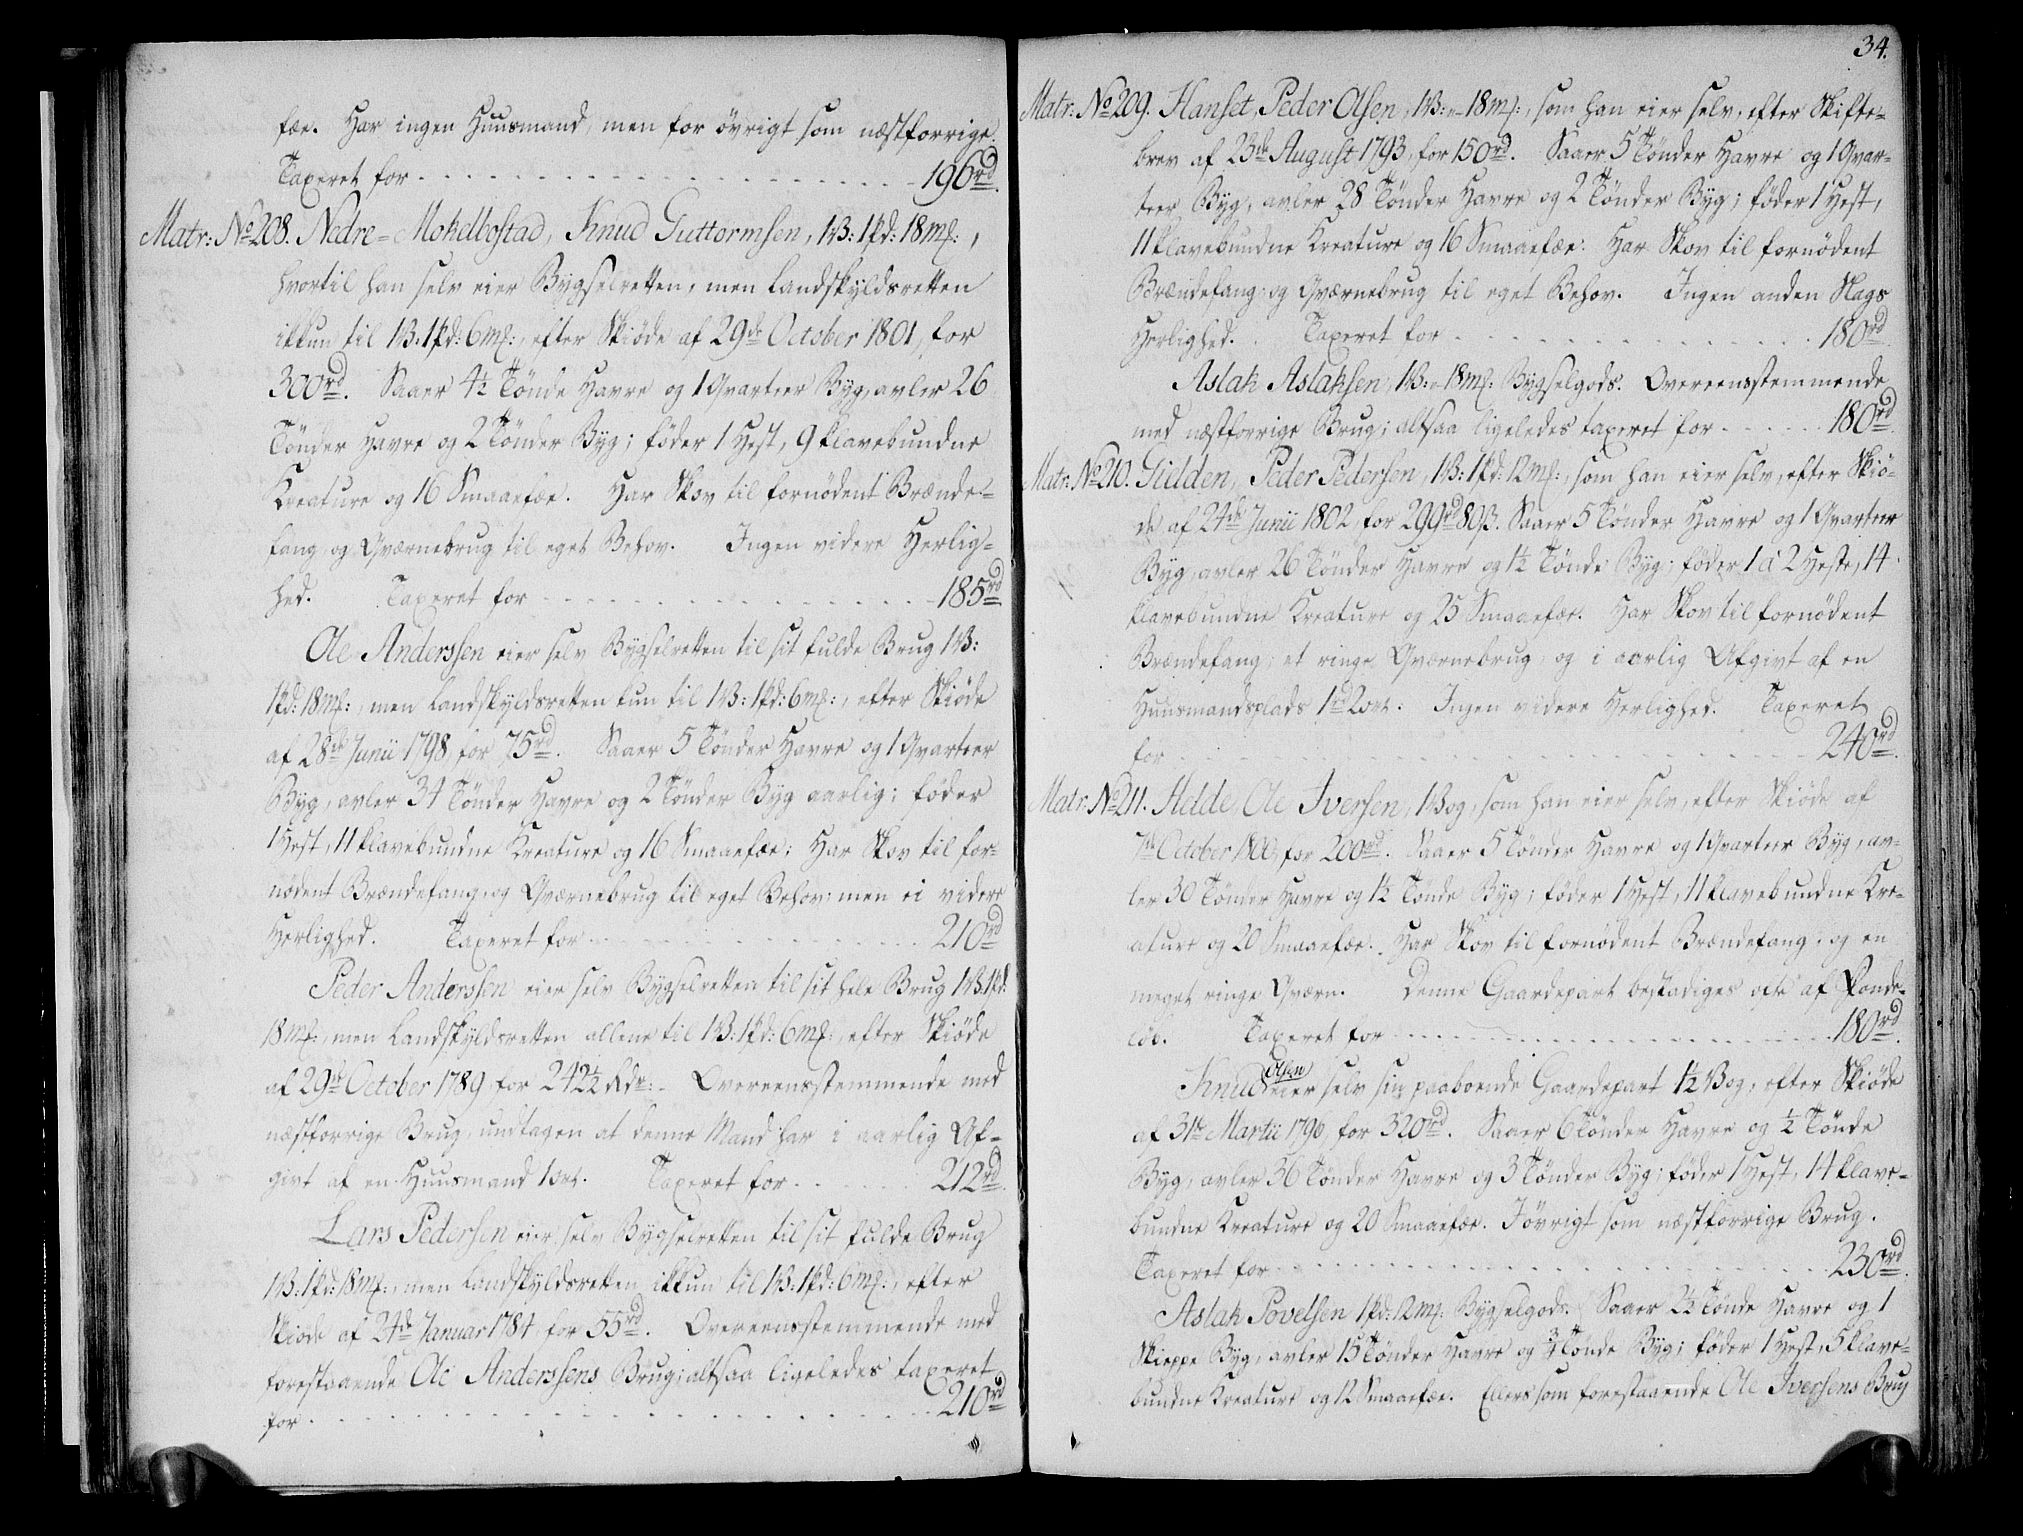 fæe. Har ingen Huusmand, men for övrigt som næstforrige.
Taxeret for - - - 196rd.
Matr: No 208. Nedre=Mokelbostad, Knud Guttormsen, 1V: 1pd: 18mk:,
hvortil han selv eier Bygselretten, men Landskyldsretten
ikkun til 1V: 1pd: 6mk:, efter Skiöde af 29de October 1801, for
300rd. Saaer 4½ Tönde Havre og 1 Qvarteer Byg, avler 26
Tönder Havre og 2 Tönder Byg; föder 1 Hest, 9 klavebundne
Kreature og 16 Smaaefæe. Har Skov til fornödent Brænde=
fang, og Qværnebrug til eget Behov. Ingen videre Herlig=
hed. Taxeret for - - - 185rd.
Ole Anderssen eier selv Bygselretten til sit fulde Brug 1V:
1pd: 18mk:, men Landskyldsretten kun til 1V: 1pd: 6mk:, efter Skiöde
af 28de Junii 1798, for 75rd. Saaer 5 Tönder Havre og 1 Qvarteer
Byg, avler 34 Tönder Havre og 2 Tönder Byg aarlig; föder
1 Hest, 11 klavebundne Kreature og 16 Smaaefæe; Har Skov til for=
nödent Brændefang, og Qværnebrug til eget Behov, men ei videre
Herlighed. Taxeret for - - - 210rd
Peder Anderssen eier selv Bygselretten til sit hele Brug 1V: 1pd:
18mk:, men Landskyldsretten allene til 1V: 1pd: 6mk:, efter Skiöde
af 29de October 1789 for 242½ Rdr: - Overeensstemmende med
næstforrige Brug, undtagen at denne Mand har i aarlig Af=
givt af en Huusmand 1 ort. Taxeret for - - - 212rd.
Lars Pedersen eier selv Bygselretten til sit fulde Brug
1V: 1pd: 18mk:, men Landskyldsretten ikkun til 1V: 1pd: 6mk:, efter
Skiöde af 24de Januar 1784, for 55rd. Overeensstemmende med
forestaaende Ole Anderssens Brug; altsaa ligeledes taxeret
for - - - 210rd
34.
Matr: No 209. Hanset, Peder Olsen, 1V: " 18mk:, som han eier selv, efter Skifte=
brev af 23de August 1793, for 150rd. Saaer 5 Tönder Havre og 1 Qvar=
teer Byg, avler 28 Tönder Havre og 2 Tönder Byg; föder 1 Hest,
11 klavebundne Kreature og 16 Smaaefæe. Har Skov til fornödent
Brændefang, og Qværnebrug til eget Behov. Ingen anden Slags
Herlighed. Taxeret for - - - 180rd.
Aslak Aslaksen, 1V: " 18mk: Bygselgods. Overeensstemmende
med næstforrige Brug; altsaa ligeledes taxeret for - - - 180rd.
Matr: No 210. Gidden, Peder Pedersen, 1V: 1pd: 12mk:, som han eier selv, efter Skiö=
de af 24de Junii 1802, for 299rd 80ß. Saaer 5 Tönder Havre og 1 Qvarteer
Byg, avler 26 Tönder Havre og 1½ Tönde Byg; föder 1 á 2 Heste, 14
klavebundne Kreature og 25 Smaaefæe. Har Skov til fornödent
Brændefang; et ringe Qværnebrug, og i aarlig Afgivt af en
Huusmandsplads 1rd 2ort. Ingen videre Herlighed. Taxeret
for - - - 240rd.
Matr: No 211. Helde, Ole Iversen, 1Vog, som han eier selv, efter Skiöde af
7de October 1800, for 200rd. Saaer 5 Tönder Havre og 1 Qvarteer Byg, av=
ler 30 Tönder Havre og 1½ Tönde Byg; föder 1 Hest, 11 klavebundne Kre=
ature og 20 Smaaefæe. Har Skov til fornödent Brændefang, og en
meget ringe Qværn. Denne Gaardepart beskadiges ofte af Sonde=
elve. Taxeret for - - - 180rd.
Knud Olsen eier selv sin paaboende Gaardepart 1½ Vog, efter Skiöde
af 31te Martii 1796, for 320rd. Saaer 6 Tönder Havre og ½ Tönde
Byg, avler 36 Tönder Havre og 3 Tönder Byg; föder 1 Hest, 14 klave=
bundne Kreature og 20 Smaaefæe. I övrigt som næstforrige Brug.
Taxeret for - - - 230rd.
Aslak Povelsen 1pd: 12mk: Bygselgods. Saaer 2½ Tönde Havre og 1
Skieppe Byg, avler 15 Tönder Havre og ¾ Tönde Byg; föder 1 Hest, 5 klave=
bundne Kreature og 12 Smaaefæe. Ellers som forestaaende Ole Iversens Brug